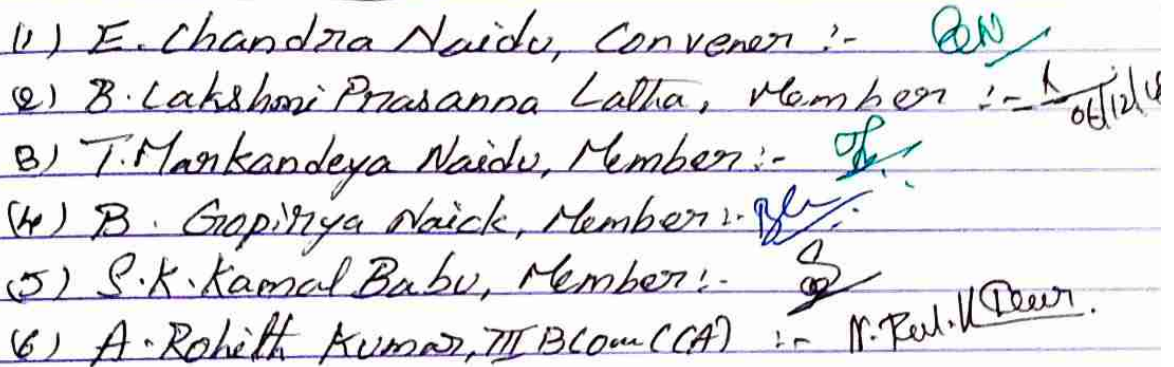 (1) E. Chandra Naidu, Convener :-
(2) B. Lakshmi Prasanna Latha, Member :- 06/12/18
(3) T. Markandeya Naidu, Member :-
(4) B. Gopiriya Naick, Member :-
(5) S.K. Kamal Babu, Member :-
(6) A. Rohith Kumar, III BCom (CA) :-